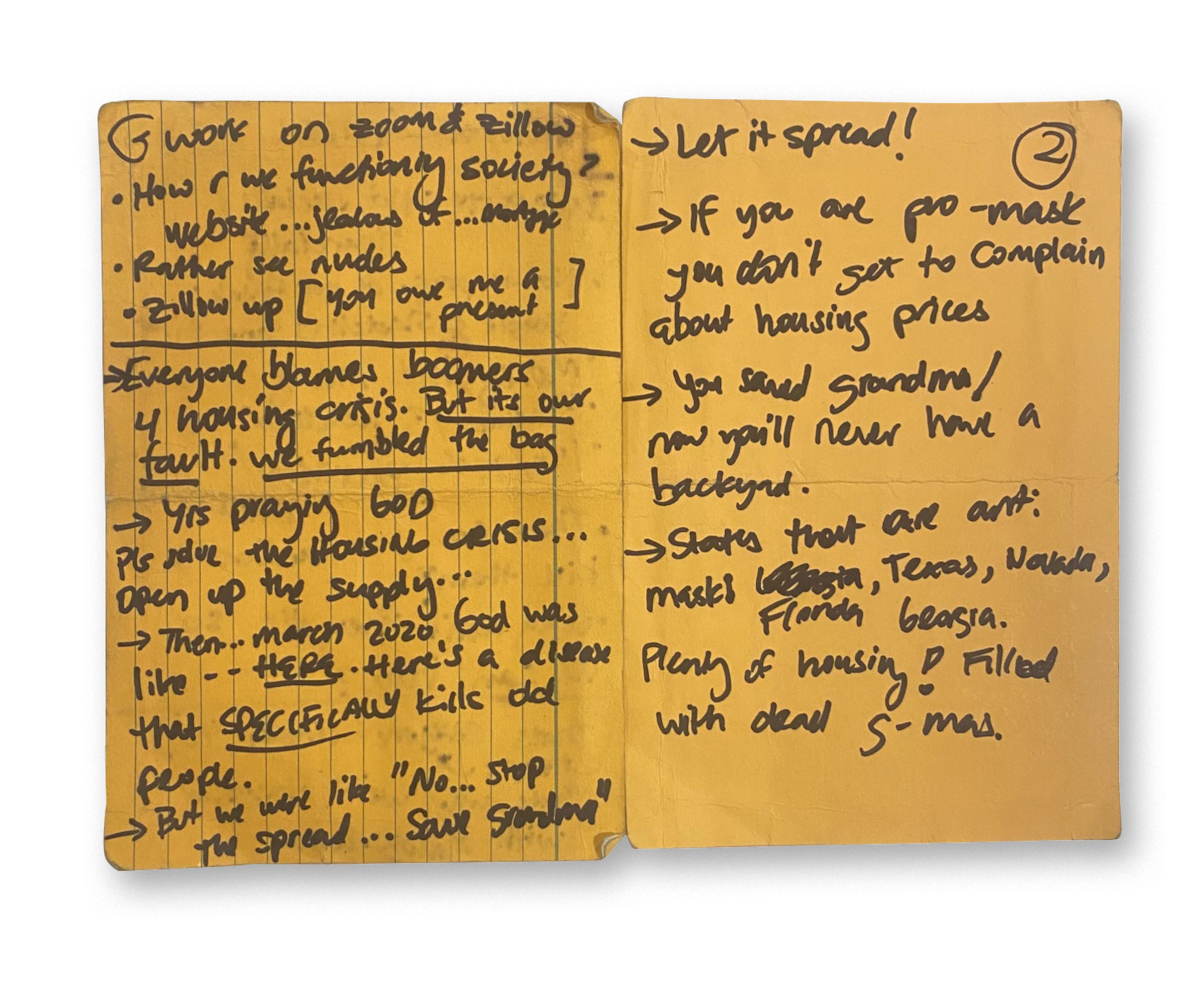 G work on zoom & zillow
• How r we functioniy society?
website ...jealous of ...
• Rather see nudes
• Zillow up [you owe me a
present]
→Everyone blames boomers
4 housing crisis. But its our
fault. we fumbled the bag
→ Yrs praying GOD
Pls solve the HOUSING CRISIS...
open up the supply...
→ Then.. march 2020 God was
like -- HERE. Here's a disease
that SPECIFICALLY kills old
people.
→ But we were like "No... stop
the spread... Save Grandma"
→ Let it spread!
2
→ If you are pro-mask
you don't get to complain
about housing prices
→ you saved grandma/
now you'll never have a
backyard.
→ States that are anti:
masks, Texas, Nevada,
Florida Georgia.
Plenty of housing! Filled
with dead g-mas.